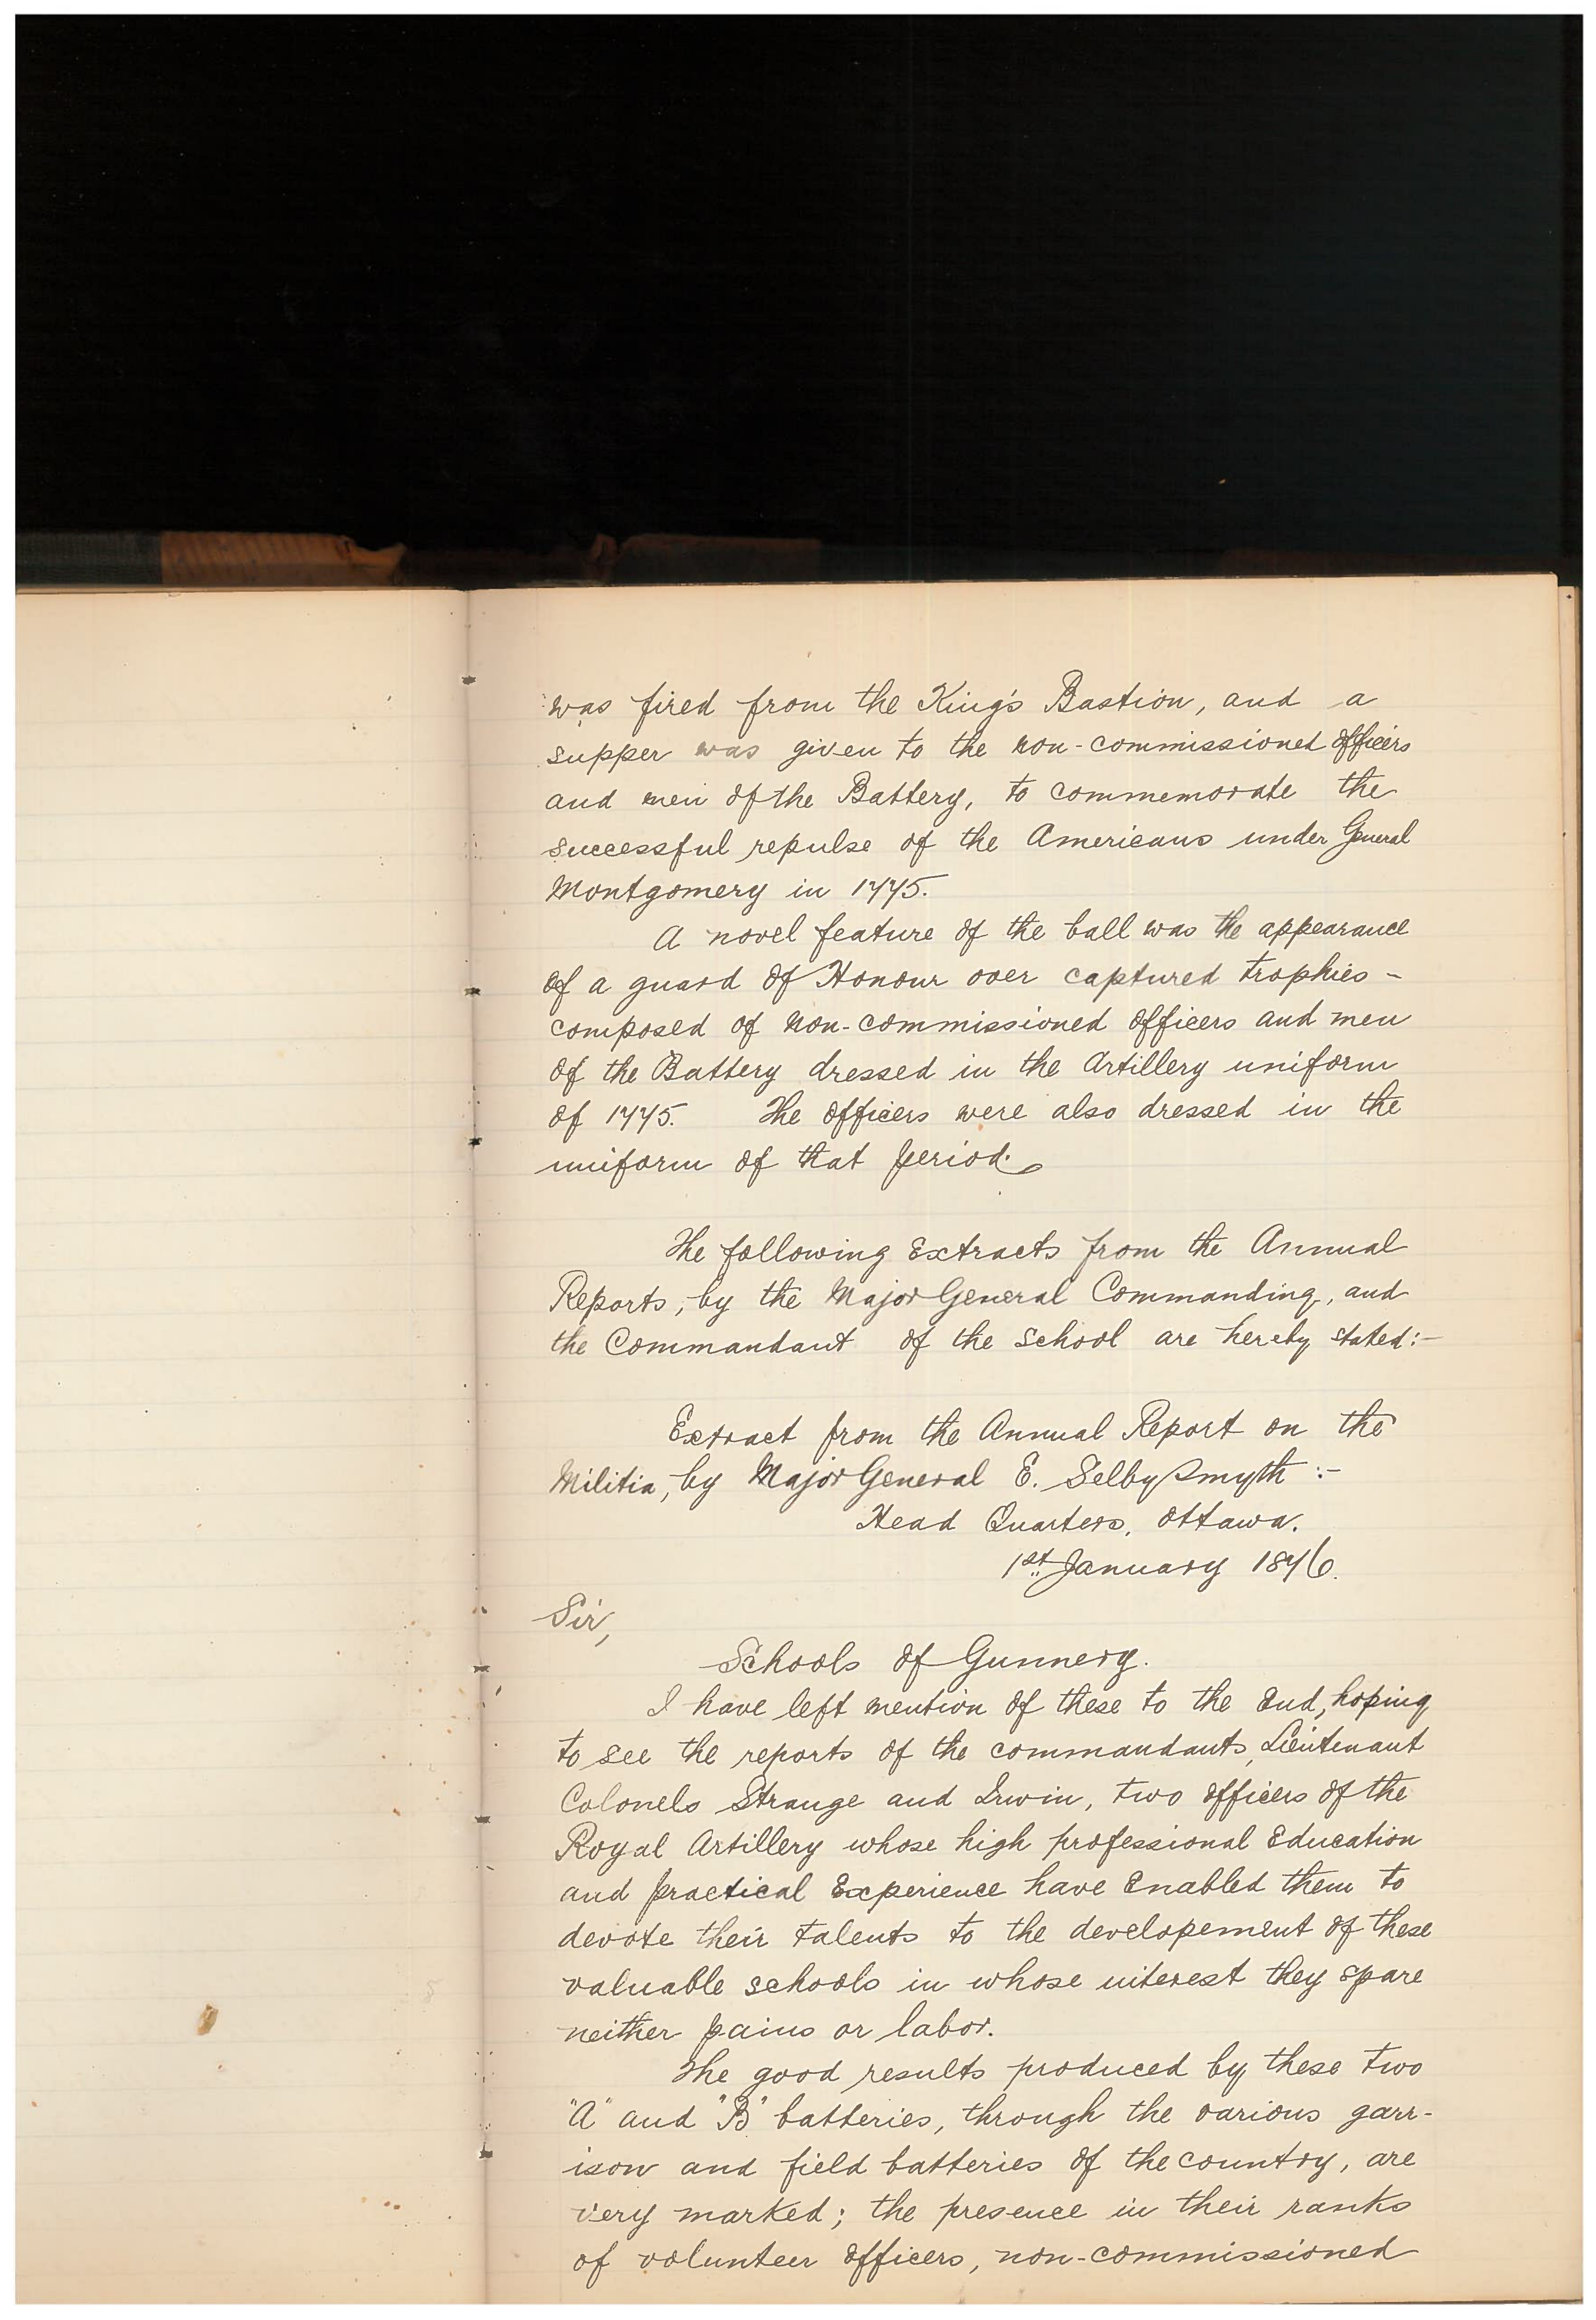 was fired from the King's Bastion, and a
supper was given to the non-commissioned officers
and men of the Battery, to commemorate the
successful repulse of the Americans under General
Montgomery in 1775.
A novel feature of the ball was the appearance
of a guard of Honour over captured trophies -
composed of non-commissioned officers and men
of the Battery dressed in the Artillery uniform
of 1775. The officers were also dressed in the
uniform of that period.
The following Extracts from the Annual
Reports, by the Major General Commanding, and
the Commandant of the School are hereby stated:-
Extract from the Annual Report on the
Militia, by Major General E. Selby Smyth :-
Head Quarters, Ottawa.
1st January 1876.
Sir,
Schools of Gunnery.
I have left mention of these to the End, hoping
to see the reports of the commandants, Lieutenant
Colonels Strange and Irwin, two officers of the
Royal Artillery whose high professional Education
and practical Experience have Enabled them to
devote their talents to the developement of these
valuable schools in whose interest they spare
neither pains or labor.
The good results produced by these two
"A" and "B" batteries, through the various garr-
ison and field batteries of the country, are
very marked; the presence in their ranks
of volunteer officers, non-commissioned